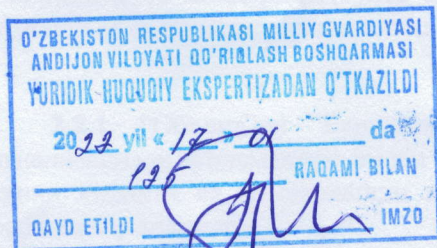 O'ZBEKISTON RESPUBLIKASI MILLIY GVARDIYASI
ANDIJON VILOYATI QO'RIQLASH BOSHQARMASI
YURIDIK-HUQUQIY EKSPERTIZADAN O'TKAZILDI
2022 yil « 17 » da
125 RAQAMI BILAN
QAYD ETILDI IMZO